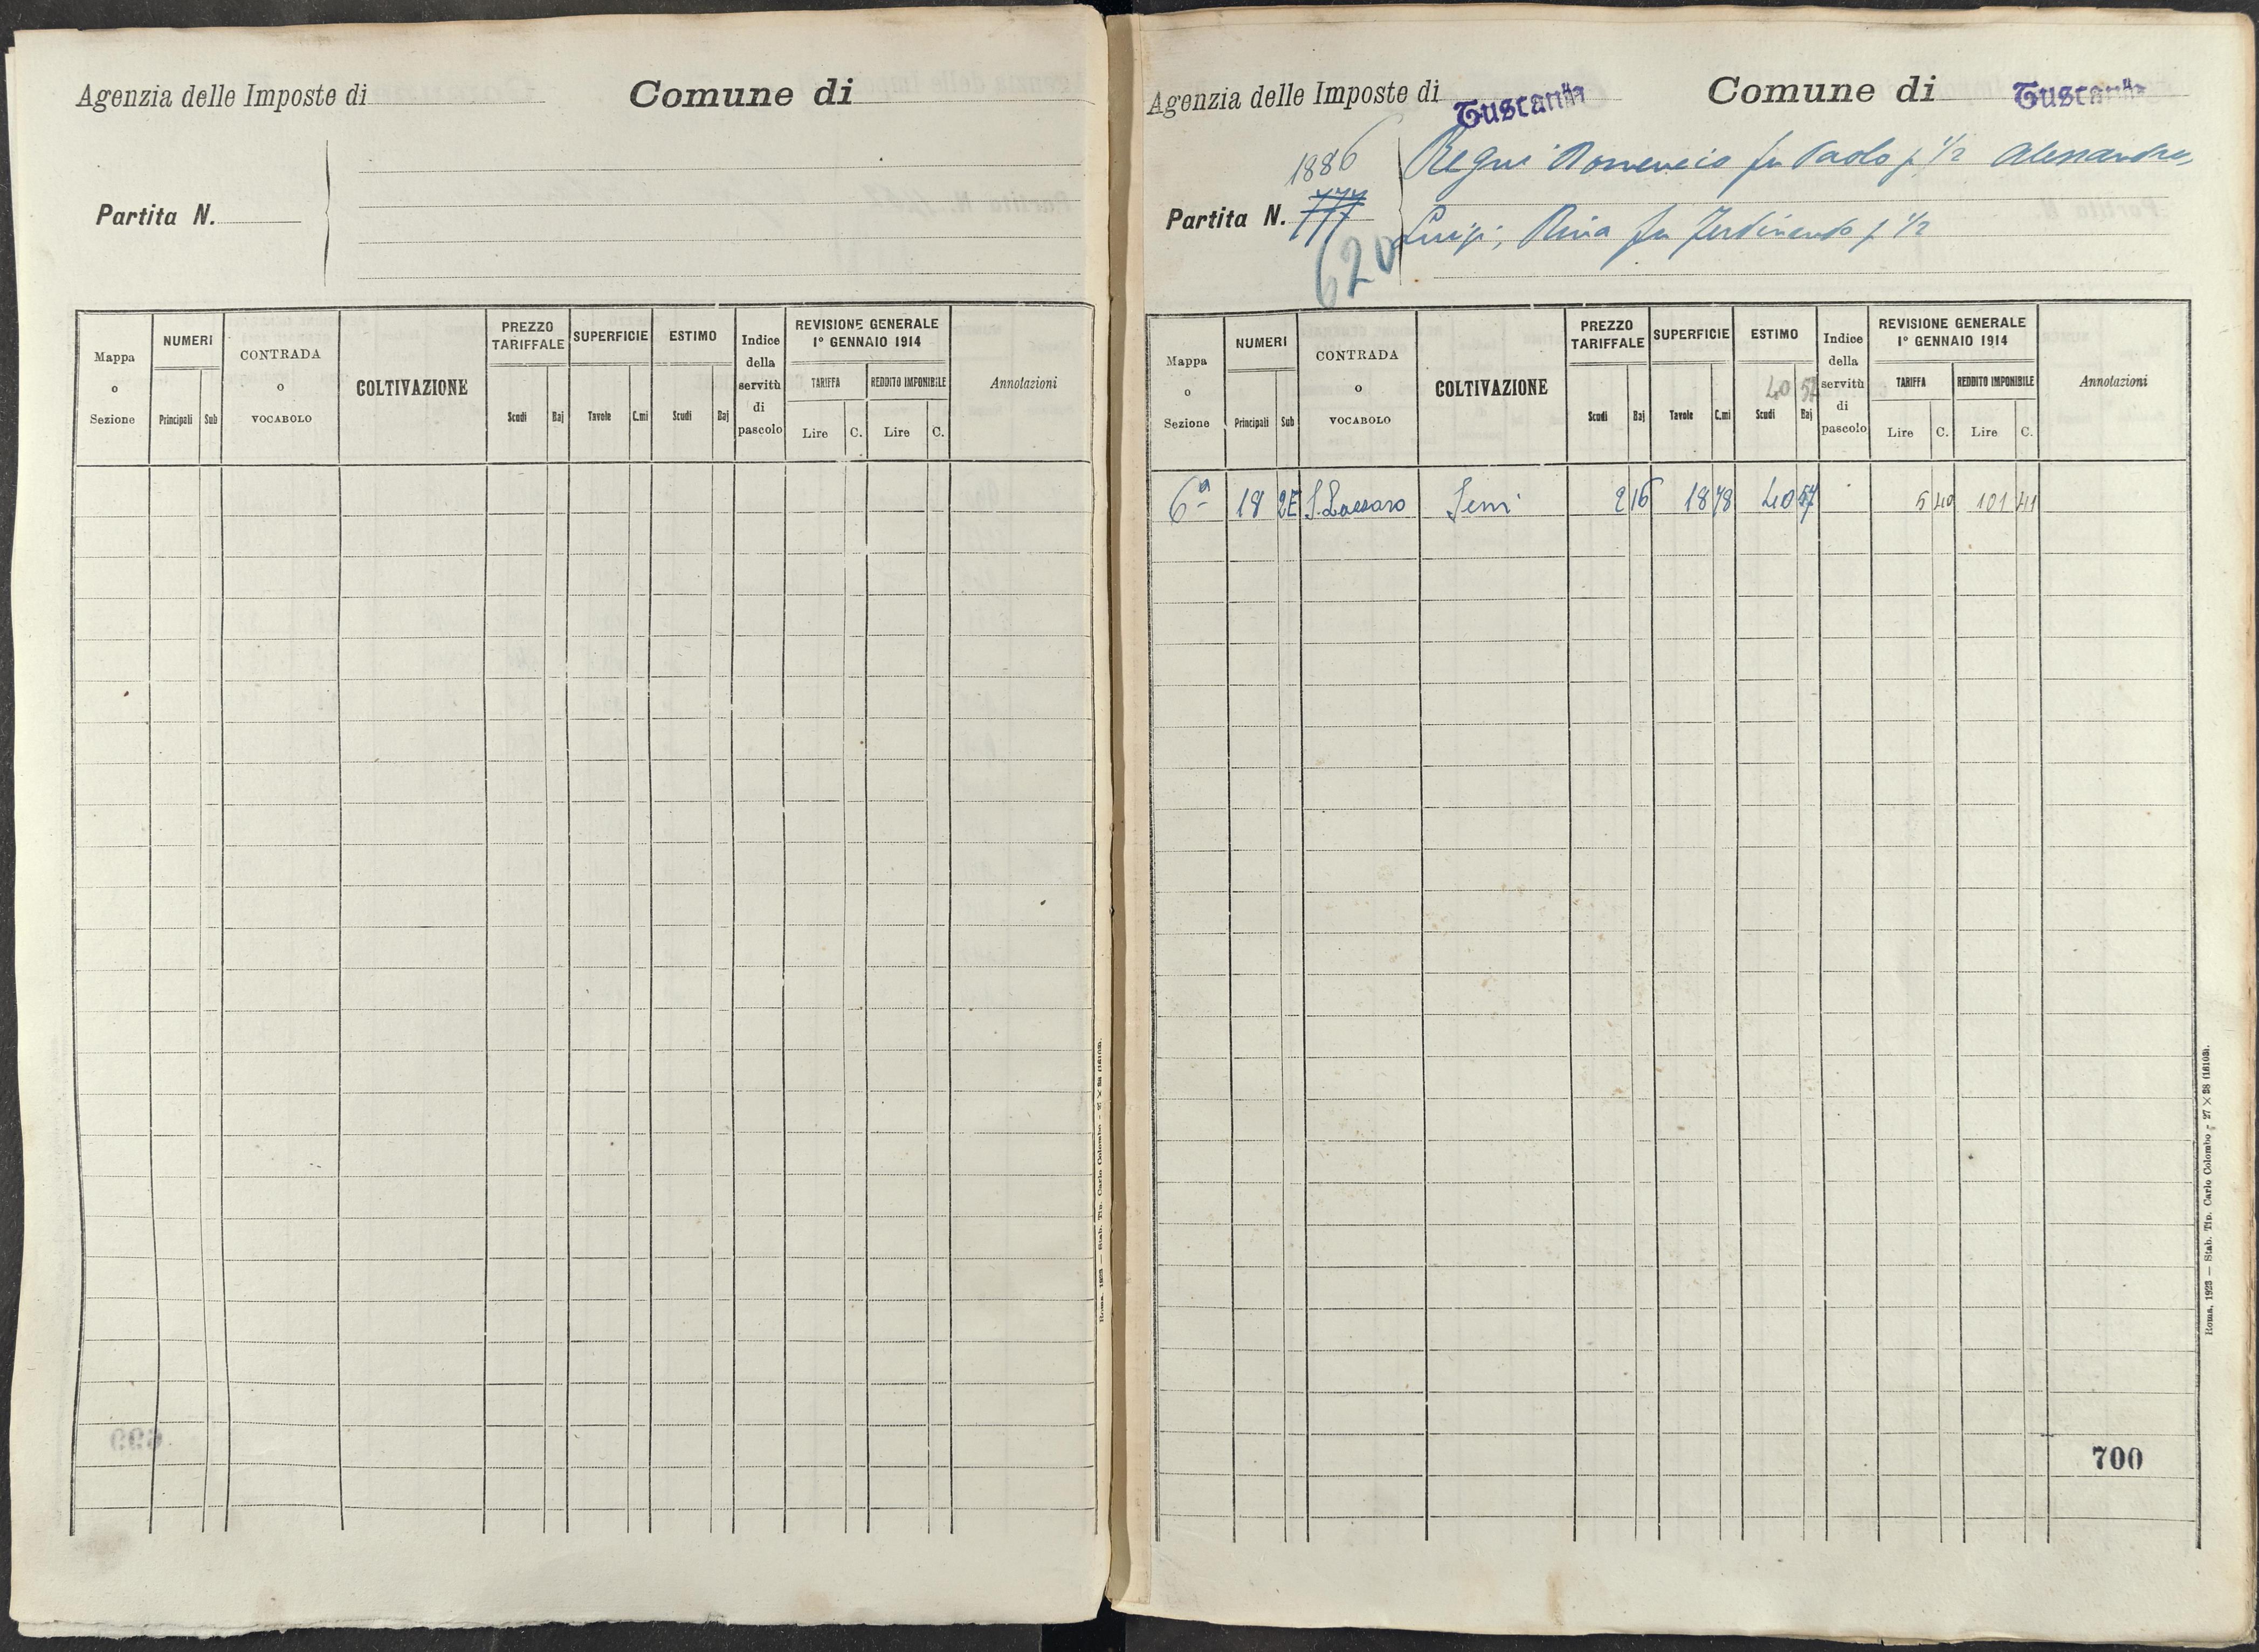 Agenzia delle Imposte di
Comune di
Partita N.
Mappa o Sezione
NUMERI
Principali
Sub
CONTRADA o VOCABOLO
COLTIVAZIONE
PREZZO TARIFFALE
Scudi
Baj
SUPERFICIE
Tavole
C.mi
ESTIMO
Scudi
Baj
Indice della servitù di pascolo
REVISIONE GENERALE
1° GENNAIO 1914
TARIFFA
REDDITO IMPONIBILE
Lire
C.
Lire
C.
Annotazioni
Roma, 1923 — Stab. Tip. Carlo Colombo - 27 × 38 (16103).
Agenzia delle Imposte di Tuscania
Comune di Tuscania
1886
Partita N. 777
620
Regni Domenico fu Paolo p 1/2 Alessandro,
Luigi, Rina fu Ferdinando p 1/2
Mappa o Sezione
NUMERI
Principali
Sub
CONTRADA o VOCABOLO
COLTIVAZIONE
PREZZO TARIFFALE
Scudi
Baj
SUPERFICIE
Tavole
C.mi
ESTIMO
40 57
Scudi
Baj
Indice della servitù di pascolo
REVISIONE GENERALE
1° GENNAIO 1914
TARIFFA
REDDITO IMPONIBILE
Lire
C.
Lire
C.
Annotazioni
6a 18 2E S. Lazzaro Semi 2 16 18 78 40 57 5 40 101 41
700
Roma, 1923 — Stab. Tip. Carlo Colombo - 27 × 38 (16103).